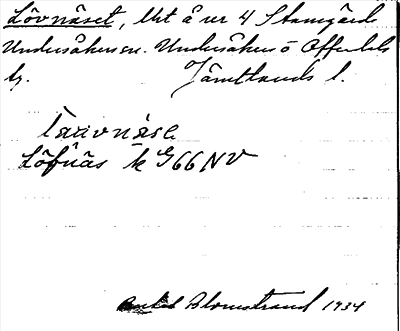 Lövnäset, lht å nr 4 Stamgärde
Undersåkers sn. Undersåkers o Offerdals
tg. Jämtlands l.
Löfnäs k G66NV
Blomstrand 1934